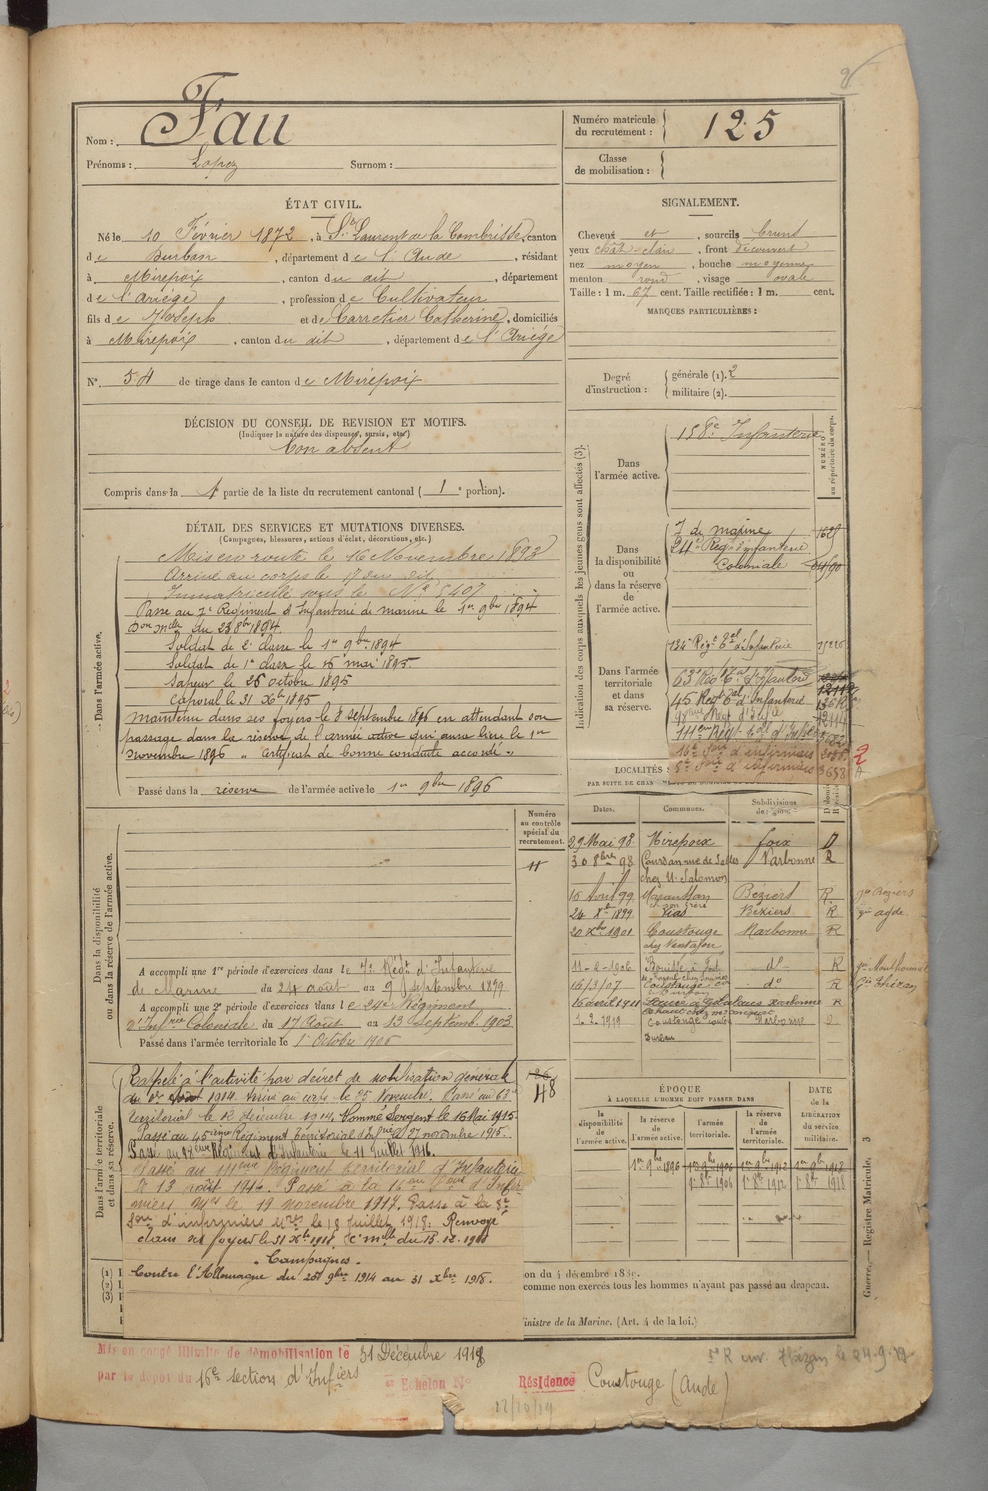 Nom : Fau
Prénoms : Lopez Surnom :
Numéro matricule du recrutement : 125
Classe de mobilisation :
ÉTAT CIVIL.
Né le 10 Février 1872, à St Laurent de la Cambrisse, canton
de Durban, département de l'Aude, résidant
à Mirepoix, canton du dit, département
de l'Ariège, profession de Cultivateur
fils de Joseph et de Carretier Catherine, domiciliés
à Mirepoix, canton du dit, département de l'Ariège
N° 54 de tirage dans le canton de Mirepoix
DÉCISION DU CONSEIL DE REVISION ET MOTIFS.
(Indiquer la nature des dispenses, sursis, etc.)
Bon absent
Compris dans la 1 partie de la liste du recrutement cantonal (1e portion).
SIGNALEMENT.
Cheveux et, sourcils bruns
yeux chât-clair, front découvert
nez moyen, bouche moyenne
menton rond, visage ovale
Taille : 1 m. 67 cent. Taille rectifiée : 1 m. cent.
MARQUES PARTICULIÈRES :
Degré d'instruction : générale (1). 2
militaire (2).
Indication des corps auxquels les jeunes gens sont affectés (3).
NUMÉRO au répertoire du corps.
Dans l'armée active.
158e Infanterie
Dans la disponibilité ou dans la réserve de l'armée active.
I de marine
24e Régt d'infanterie
Coloniale
Dans l'armée territoriale et dans sa réserve.
124e Régt Tal d'Infanterie
63e Régt Tal d'Infanterie
45 Regt Tal d'Infanterie
111eme Régt
16e Son d'infirmiers
8e Son d'infirmiers
DÉTAIL DES SERVICES ET MUTATIONS DIVERSES.
(Campagnes, blessures, actions d'éclat, décorations, etc.)
Dans l'armée active.
Mis en route le 16 Novembre 1893
Arrivé au corps le 17 du dit
Immatriculé sous le N° 5407
Passé au 7e Régiment d'Infanterie de marine le 1er 9bre 1894
Don mlle du 23 8bre 1894.
Soldat de 2e classe le 1er 9bre 1894
Soldat de 1e classe le 15 mai 1895
Sapeur le 26 octobre 1895
Caporal le 31 Xbre 1895
Maintenu dans ses foyers le 8 septembre 1896 en attendant son
passage dans la réserve de l'armée active qui aura lieu le 1er
novembre 1896 " Certificat de bonne conduite accordé "
Passé dans la réserve de l'armée active le 1er 9bre 1896
Numéro au contrôle spécial du recrutement.
Dans la disponibilité ou dans la réserve de l'armée active.
A accompli une 1re période d'exercices dans le 7e Régt d'Infanterie
de Marine du 24 août au 9 septembre 1899
A accompli une 2e période d'exercices dans le 24e Régiment
d'Infrie Coloniale du 17 Août au 13 Septemb. 1903
Passé dans l'armée territoriale le 1er Octobre 1906
LOCALITÉS
Dates. Communes. Subdivisions de région.
29 Mai 98 Mirepoix foix D
30 8bre 98 Coursan rue de Salles Narbonne R
chez M. Salomon
15 Avril 99 Maraussan Béziers R
24 Xbre 1899 Vias Béziers R
20 Xbre 1901 Coustouge Narbonne R
11-2-1906 do R
16/3/07 Coustouge do R
16 avril 1911 Narbonne R
1.2.1919 Coustouge Narbonne
Dans l'armée territoriale et dans sa réserve.
Rappelé à l'activité par décret de mobilisation générale
du 1er Août 1914. Arrivé au corps le 25 Novembre. Passé au 63e
territorial le 12 décembre 1914. Nommé Sergent le 16 Mai 1915.
Passé au 45ième Régiment Territorial d'Infrie le 27 novembre 1915.
Passé au 98eme Régiment d'Infanterie le 11 Juillet 1916.
Passé au 111eme Régiment territorial d'Infanterie
le 13 août 1916. Passé à la 16eme Son d'Infir-
miers Mres le 19 novembre 1917. Passé à la 8e
Son d'infirmiers Mres le 18 Juillet 1918. Renvoyé
dans ses foyers le 31 Xbre 1918
Campagnes.
Contre l'Allemagne du 25 9bre 1914 au 31 Xbre 1918.
48
ÉPOQUE
À LAQUELLE L'HOMME DOIT PASSER DANS
la disponibilité de l'armée active.
la réserve de l'armée active.
l'armée territoriale.
la réserve de l'armée territoriale.
DATE de la LIBÉRATION du service militaire.
1er 9bre 1896 1er 9bre 1906 1er 9bre 1912 1er 9bre 1918
1er 8bre 1906 1er 8bre 1912 1er 8bre 1918
comme non exercés tous les hommes n'ayant pas passé au drapeau.
inistre de la Marine. (Art. 4 de la loi.)
Guerre. — Registre Matricule. 3
Mis en congé illimité de démobilisation le 31 Décembre 1918
par le dépôt du 16e section d'Infiers Echelon N°
Résidence Coustouge (Aude)
22/10/19